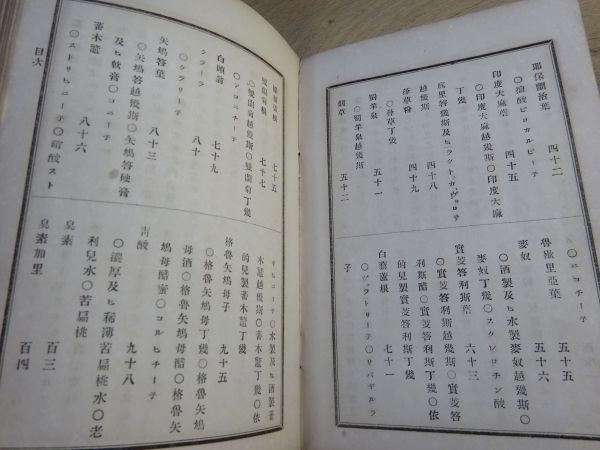 耶保蘭治葉 四十二
〇硝酸ピロカルピーチ
印度大麻葉 四十五
〇印度大麻越幾斯〇印度大麻
丁幾
越幾斯 四十八
〇莨菪丁幾
莨菪越幾斯 五十一
烟草 五十二
〇ニコチーチ
魯歇里亞葉 五十五
麥奴 五十六
〇酒製及ヒ水製麥奴越幾斯〇
麥奴丁幾〇スクレロチン酸
實芰答利斯葉 六十三
〇實芰答利斯越幾斯〇實芰答
利斯醋〇實芰答利斯丁幾〇依
的兒製實芰答利斯丁幾
白藜蘆根 七十一
〇ヴラトリーチ〇サバヂルラ
子
七十五
七十七
〇雙蘭菊越幾斯〇雙蘭菊丁幾
〇アコニチーチ
白頭翁 七十九
クラーラ 八十
〇クラリーチ
矢鳩答葉 八十三
〇矢鳩答越幾斯〇矢鳩答硬膏
及ヒ軟膏〇コニーチ
蕃木鼈 八十六
〇ストリヒニーチ〇硝酸スト
リヒニーチ〇水製及ヒ酒製蕃
木鼈越幾斯〇蕃木鼈丁幾〇依
的兒製蕃木鼈丁幾
格魯矢鳩母子 九十五
〇格魯矢鳩母丁幾〇格魯矢鳩
母酒〇格魯矢鳩母醋〇格魯矢
鳩母醋蜜〇コルヒチーチ
靑酸 九十八
〇濃厚及ヒ稀薄苦扁桃水〇老
利兒水〇苦扁桃水
臭素 百三
臭素加里 百四
目次